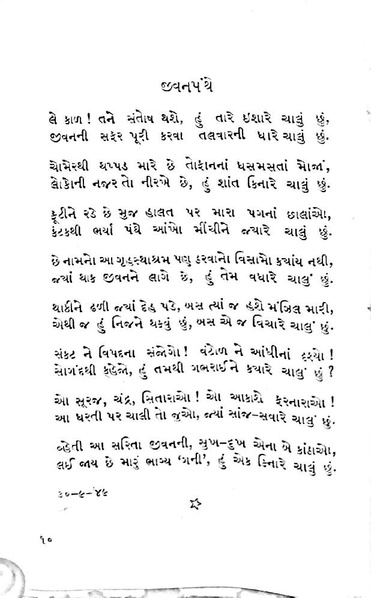 જીવનપંથે
લે કાળ! તને સંતોષ થશે, હું તારે ઇશારે ચાલું છું,
જીવનની સફર પૂરી કરવા તલવારની ધારે ચાલું છું.
ચોમેરથી થપ્પડ મારે છે તોફાનનાં ધસમસતાં મોજાં,
લોકોની નજર તો નીરખે છે, હું શાંત કિનારે ચાલું છું.
ફૂટીને રડે છે મુજ હાલત પર મારા પગનાં છાલાંઓ,
કંટકથી ભર્યા પંથે આંખો મીંચીને જ્યારે ચાલું છું.
છે નામનો આ ગૃહસ્થાશ્રમ પણ ઠરવાનો વિસામો ક્યાંય નથી,
જ્યાં થાક જીવનને લાગે છે, હું તેમ વધારે ચાલું છું.
થાકીને ઢળી જ્યાં દેહ પડે, બસ ત્યાં જ હશે મંઝિલ મારી,
એથી જ હું નિજને થકવું છું, બસ એ જ વિચારે ચાલું છું.
સંકટ ને વિપદના સંજોગો! વંટોળ ને આંધીનાં દ્રશ્યો!
સોગંદથી કહેજો, હું તમથી ગભરાઈને ક્યારે ચાલું છું?
ઓ સૂરજ, ચંદ્ર, સિતારાઓ! ઓ આકાશે ફરનારાઓ!
આ ધરતી પર ચાલી તો જુઓ, જ્યાં સાંજ-સવારે ચાલું છું.
વ્હેતી આ સરિતા જીવનની, સુખ-દુખ એના બે કાંઠાઓ,
લઈ જાય છે મારું ભાગ્ય ‘ગની’, હું એક કિનારે ચાલું છું.
૩૦-૯-૪૯
૧૦